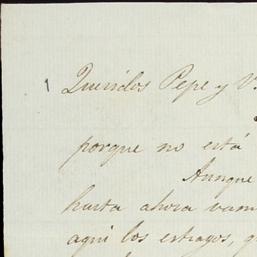 1
Queridos Pepe y V
porque no está
Aunque
hasta ahora vam
aqui los estragos, q